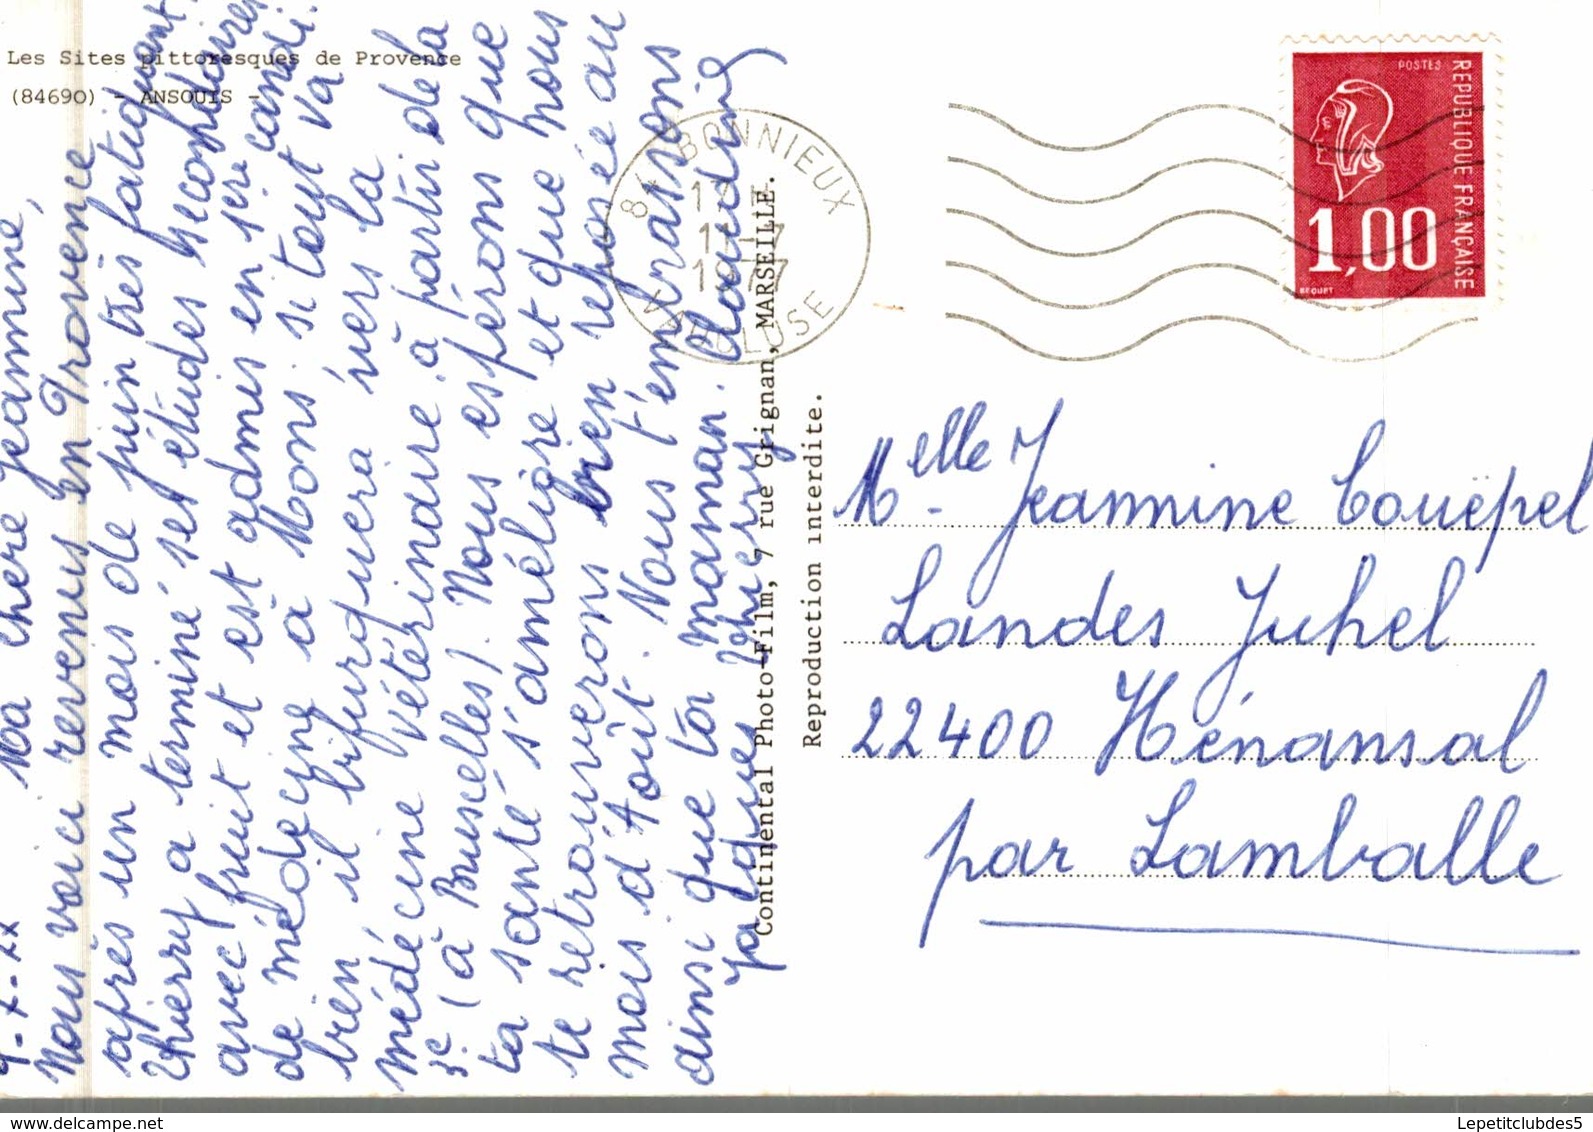 Les Sites pittoresques de Provence
(84690) - ANSOUIS -
9-7-77 Ma chère Jeannine,
Nous voici revenus en Provence
après un mois de juin très fatiguant.
Thierry a terminé ses études secondaires
avec fruit et est admis en 1ère candi.
de médecine à Mons. si tout va
bien il bifurquera vers la
médécine vétérinaire à partir de la
3e (à Bruxelles). Nous espérons que
ta santé s'améliore et que nous
te retrouverons bien reposée au
mois d'Août. Nous t'embrassons
ainsi que ta maman. Claudine
Jacques Thierry
Continental Photo-Film, 7 rue Grignan, MARSEILLE.
Reproduction interdite.
84 BONNIEUX
11-7
1977
VAUCLUSE
POSTES
REPUBLIQUE FRANÇAISE
1,00
BEQUET
Melle Jeannine Couëpel
Landes Juhel
22400 Hénansal
par Lamballe
Lepetitclubdes5